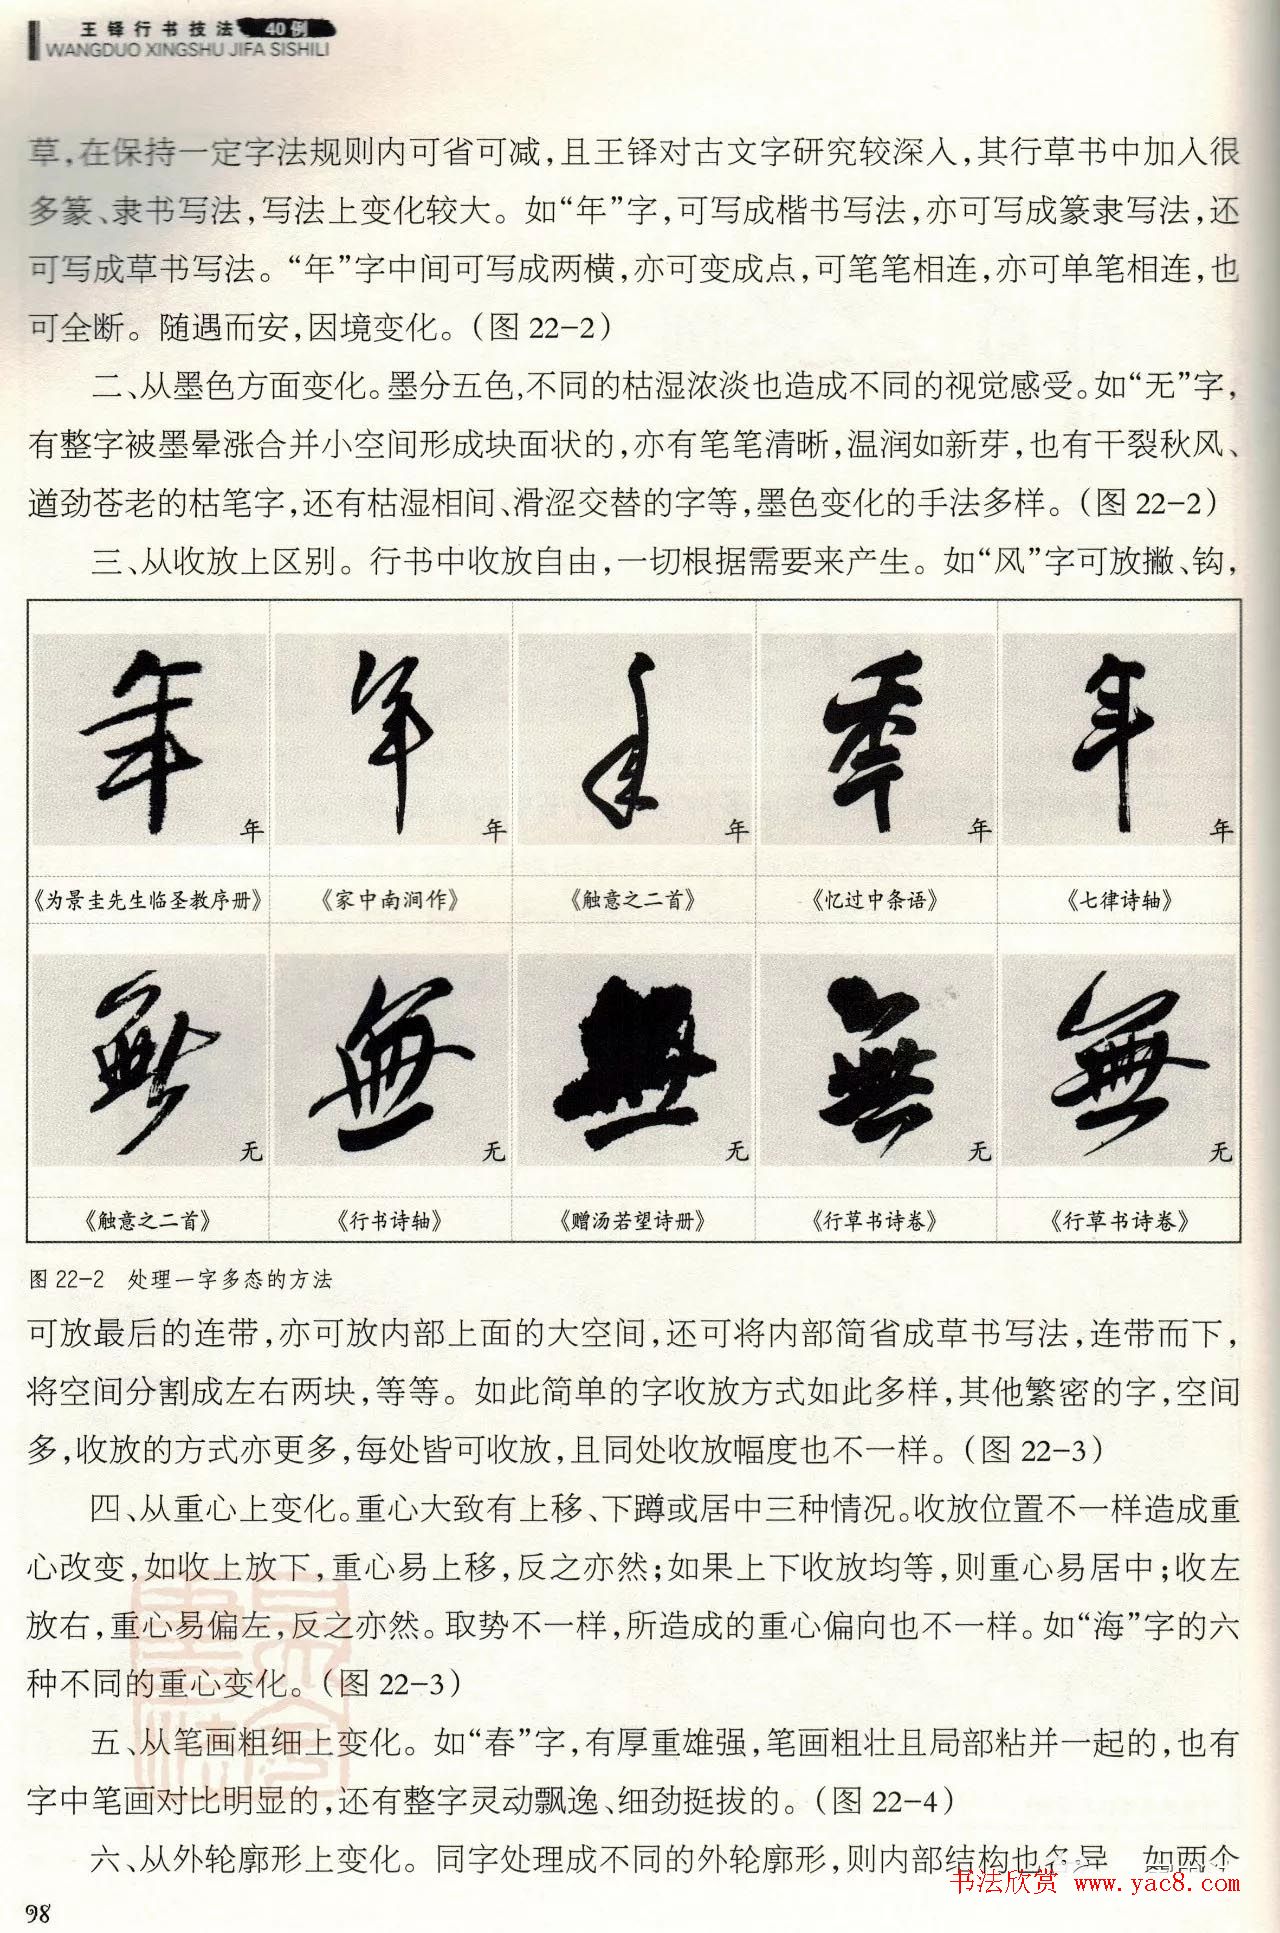 王铎行书技法 40例
WANGDUO XINGSHU JIFA SISHILI
草,在保持一定字法规则内可省可减,且王铎对古文字研究较深入,其行草书中加入很
多篆、隶书写法,写法上变化较大。如“年”字,可写成楷书写法,亦可写成篆隶写法,还
可写成草书写法。“年”字中间可写成两横,亦可变成点,可笔笔相连,亦可单笔相连,也
可全断。随遇而安,因境变化。(图 22-2)
二、从墨色方面变化。墨分五色,不同的枯湿浓淡也造成不同的视觉感受。如“无”字,
有整字被墨晕涨合并小空间形成块面状的,亦有笔笔清晰,温润如新芽,也有干裂秋风、
遒劲苍老的枯笔字,还有枯湿相间、滑涩交替的字等,墨色变化的手法多样。(图 22-2)
三、从收放上区别。行书中收放自由,一切根据需要来产生。如“风”字可放撇、钩,
年 年 年 年 年
《为景圭先生临圣教序册》 《家中南涧作》 《触意之二首》 《忆过中条语》 《七律诗轴》
无 无 无 无 无
《触意之二首》 《行书诗轴》 《赠汤若望诗册》 《行草书诗卷》 《行草书诗卷》
图 22-2 处理一字多态的方法
可放最后的连带,亦可放内部上面的大空间,还可将内部简省成草书写法,连带而下,
将空间分割成左右两块,等等。如此简单的字收放方式如此多样,其他繁密的字,空间
多,收放的方式亦更多,每处皆可收放,且同处收放幅度也不一样。(图 22-3)
四、从重心上变化。重心大致有上移、下蹲或居中三种情况。收放位置不一样造成重
心改变,如收上放下,重心易上移,反之亦然;如果上下收放均等,则重心易居中;收左
放右,重心易偏左,反之亦然。取势不一样,所造成的重心偏向也不一样。如“海”字的六
种不同的重心变化。(图 22-3)
五、从笔画粗细上变化。如“春”字,有厚重雄强,笔画粗壮且局部粘并一起的,也有
字中笔画对比明显的,还有整字灵动飘逸、细劲挺拔的。(图 22-4)
六、从外轮廓形上变化。同字处理成不同的外轮廓形,则内部结构也各异 如两个
书法欣赏 www.yac8.com
98